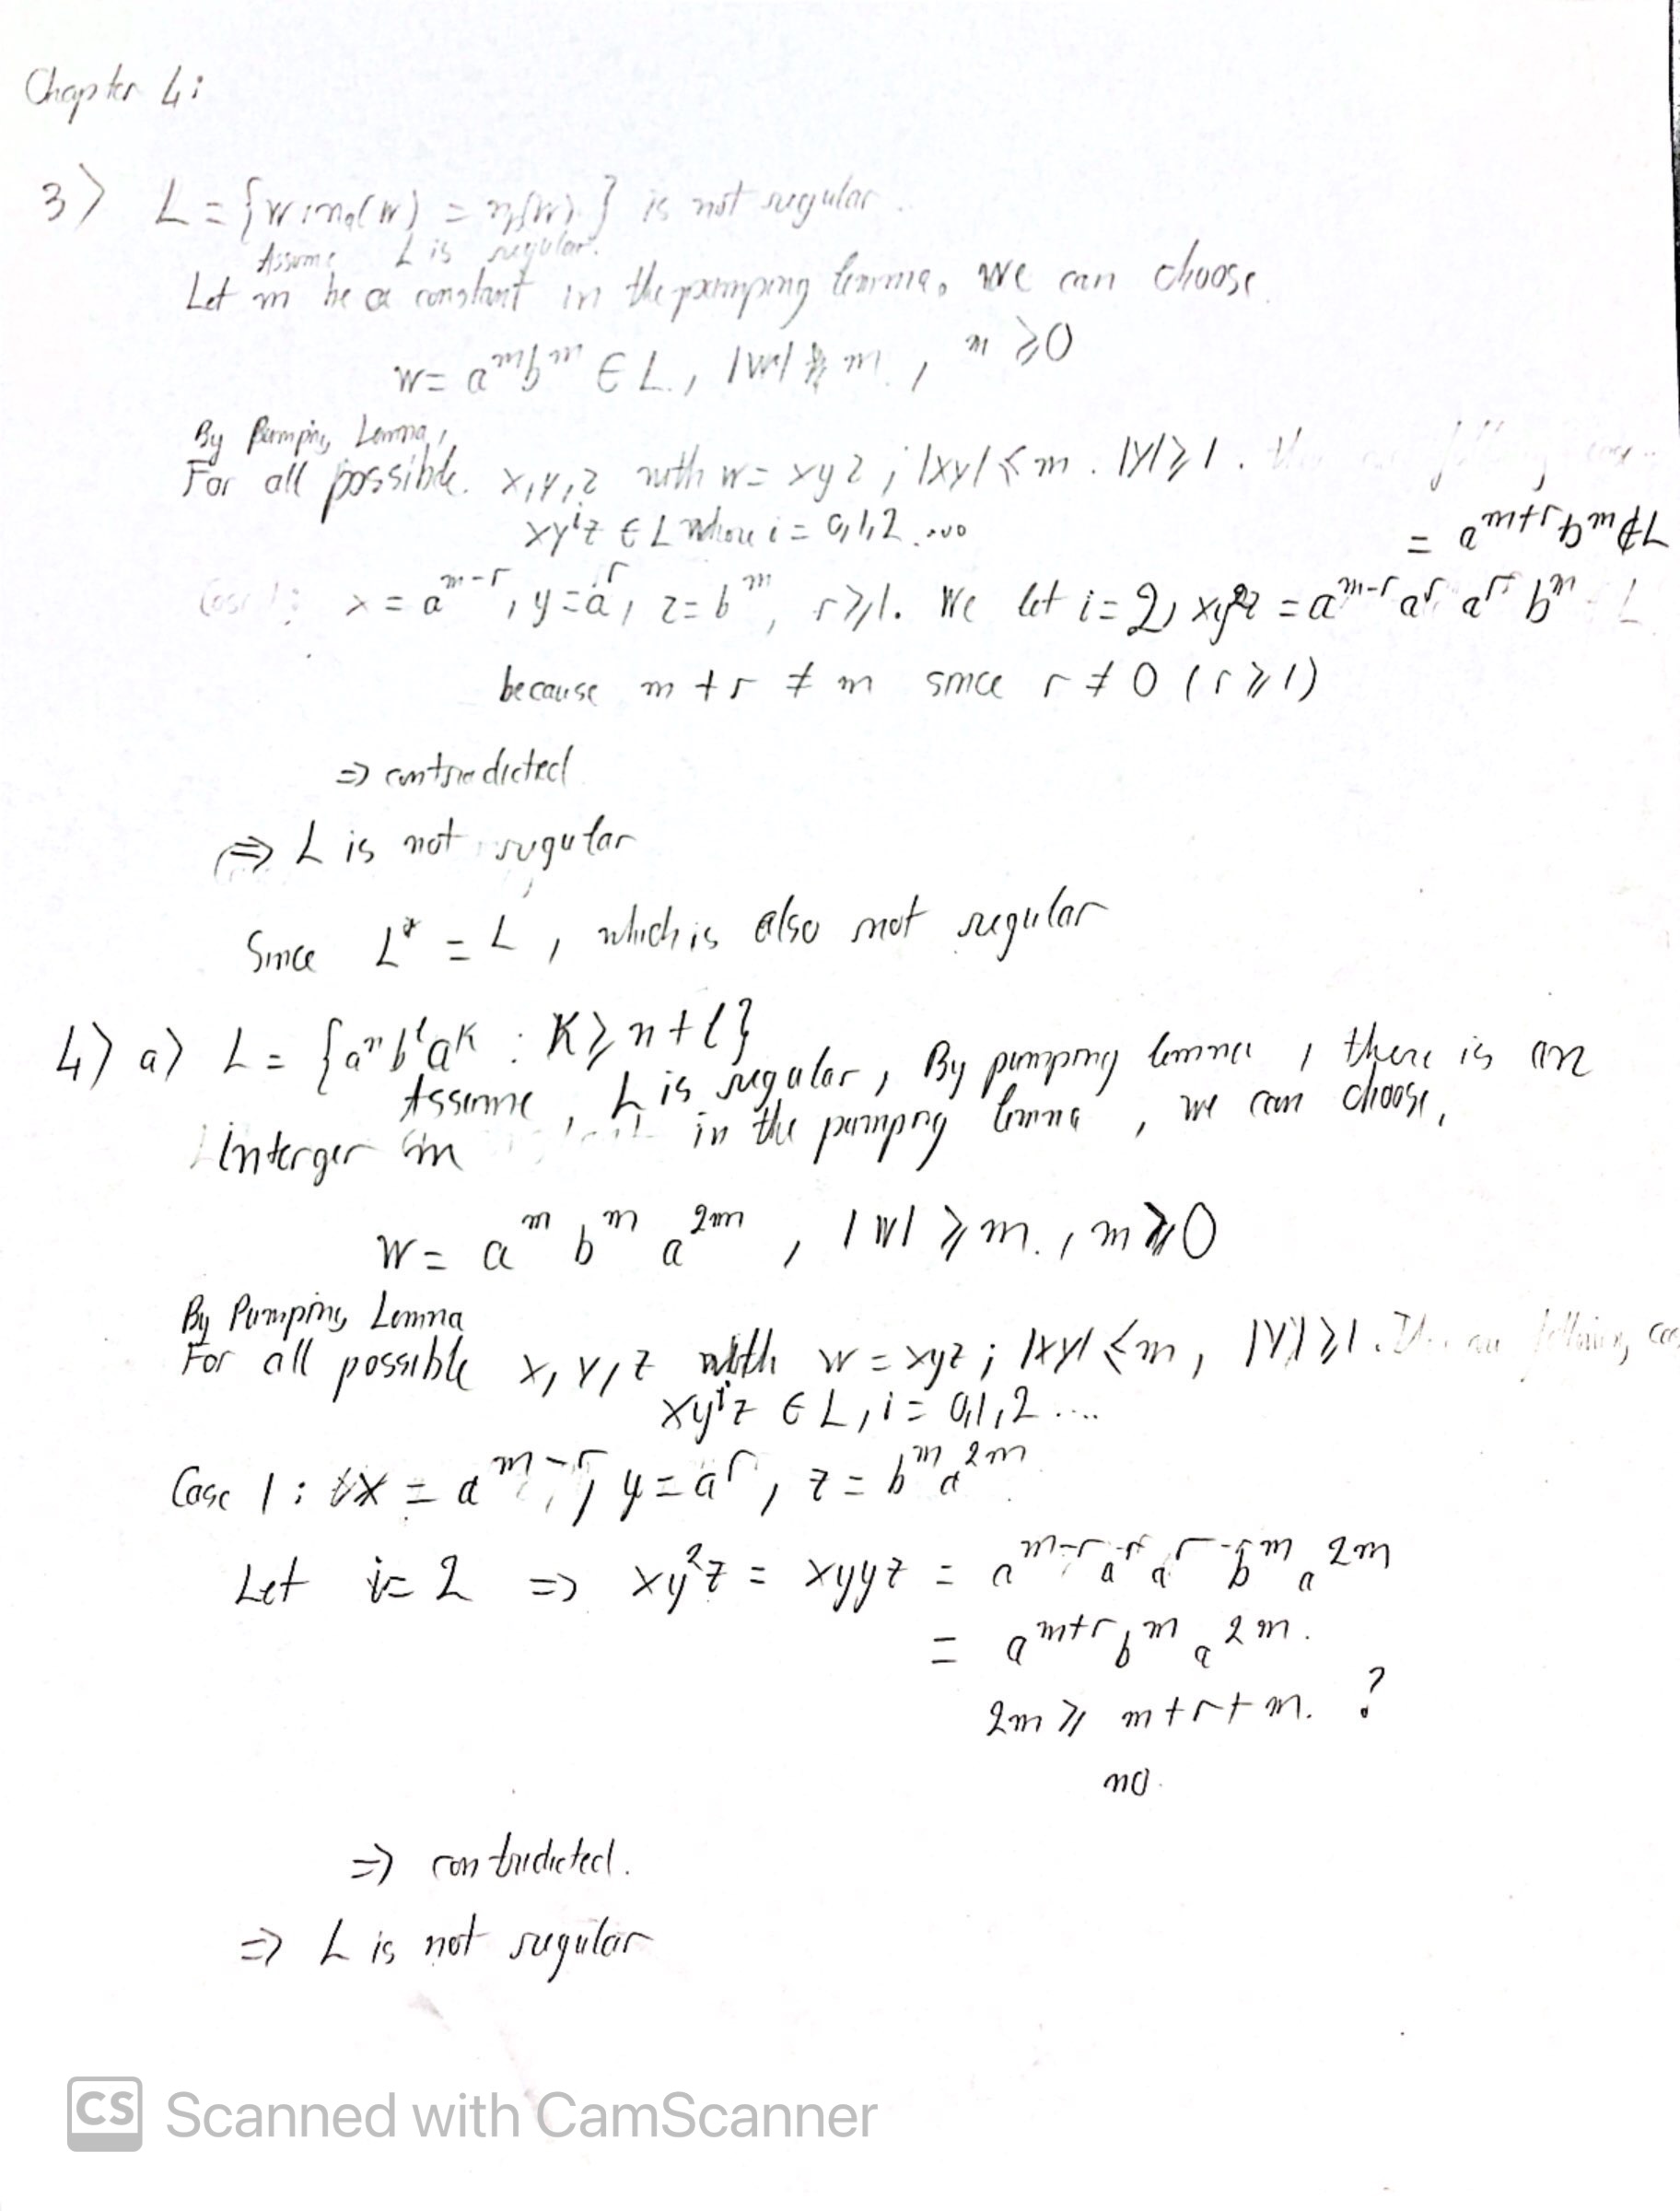 Chapter 4:
3) L = {w : na(w) = nb(w)} is not regular.
Assume L is regular.
Let m be a constant in the pumping lemma. We can choose
w = a^m b^m ∈ L, |w| ≥ m, m ≥ 0
By Pumping Lemma,
For all possible x, y, z with w = xyz; |xy| ≤ m. |y| ≥ 1.
xy^i z ∈ L where i = 0,1,2 ...
= a^{m+r} b^m ∉ L
Case 1: x = a^{m-r}, y = a^r, z = b^m, r ≥ 1. We let i = 2, xy^2z = a^{m-r} a^r a^r b^m
because m + r ≠ m since r ≠ 0 (r ≥ 1)
=> contradicted
=> L is not regular
Since L* = L, which is also not regular
4) a) L = {a^n b^l a^k : K ≥ n + l}
Assume, L is regular, By pumping lemma, there is an
Interger m in the pumping lemma, we can choose,
w = a^m b^m a^{2m}, |w| ≥ m., m ≥ 0
By Pumping Lemma
For all possible x, y, z with w = xyz; |xy| ≤ m, |y| ≥ 1.
xy^i z ∈ L, i = 0,1,2 ....
Case 1: x = a^{m-r}, y = a^r, z = b^m a^{2m}
Let i = 2 => xy^2z = xyyz = a^{m-r} a^r a^r b^m a^{2m}
= a^{m+r} b^m a^{2m}.
2m ≥ m + r + m. ?
no.
=> contridicted.
=> L is not regular
CS Scanned with CamScanner